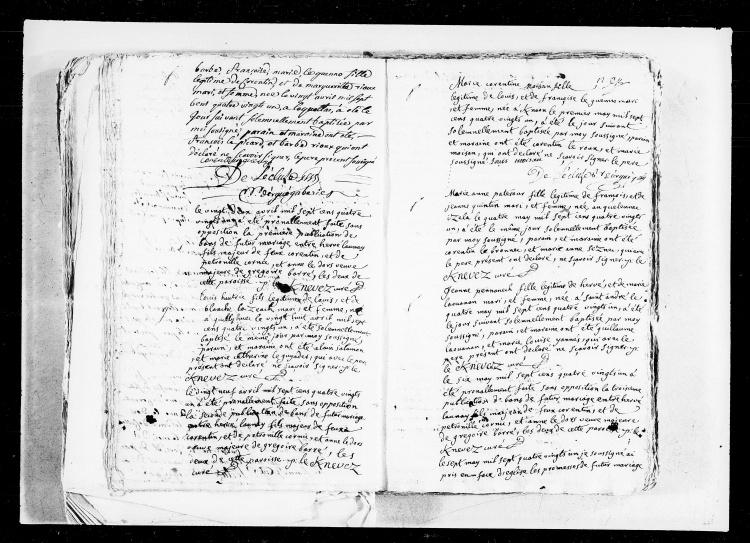 barbe françoise, marie le guenno fille
legitime de Corentin et de marguerite rioux
mari, et femme, née le vingt avril mil sept
cent quatre vingt un, a été le
jour suivant solemnellement baptisée par
moy soussigné, parain et maraine ont été
françois le picard, et barbe rioux qui ont
déclaré ne scavoir signer, le pere present soussigné
corentin
De Lécluse
le vingt deux avril mil sept cens quatre
vingt un a été prônallement faite sans
opposition la première publication de
bans de futur mariage entre hervé launay
fils majeur de feux corentin, et de
petronille cornic, et anne le dors veuve
majeure de gregoire barré, les deux de
cette paroisse le Knevez curé
Louis fils legitime de Louis, et de
blanche mari, et femme, né
le vingt huit avril mil sept
cens quatre vingts un, a été solemnellement
baptisé le même jour par moy soussigné,
parain, et maraine ont été alain salaun
et marie catherine le guyader, qui avec le pere
present ont déclaré ne scavoir signer
le Knevez curé
le vingt neuf avril mil sept cens quatre vingts
un a été prônallement faite sans opposition
la seconde publication de bans de futur mariage
entre hervé launay fils majeur de feux
corentin, et de petronille cornic, et anne le dors
veuve majeure de gregoire barré, les
deux de cette paroisse le Knevez
curé
Marie corentine moisan fille
legitime de louis, et de françoise le guenno mari
et femme, née à le premier may mil sept
cens quatre vingts un, a été le jour suivant
solemnellement baptisée par moy soussigné parain
et maraine ont été corentin le roux, et marie
moisan, qui ont déclaré ne scavoir signer le pere
soussigné Louis moisan
De Lécluse
Marie anne fille legitime de françois, et de
jeanne quintin mari, et femme, née
le quatre may mil sept cens quatre vingts
un, a été le même jour solemnellement baptisée
par moy soussigné, parain, et maraine ont été
corentin le et marie anne qui avec
le pere présent ont déclaré ne scavoir signer
le Knevez curé
Jeanne fille legitime de hervé, et de marie
laouenan mari, et femme, née à saint andré le
quatre may mil sept cens quatre vingts un, a été
le jour suivant solemnellement baptisée par moy
soussigné, parain, et maraine ont été guillaume
laouenan, et marie louise qui avec le
pere present ont déclaré ne scavoir signer
le Knevez curé
le six may mil sept cens quatre vingts un a
été prônallement faite sans opposition la troisieme
publication de bans de futur mariage entre hervé
launay fils majeur de feux corentin, et de
petronille cornic, et anne le dors veuve majeure
de gregoire barré, les deux de cette paroisse le
Knevez curé
le sept may mil sept cens quatre vingts un je soussigné ai
pris en face d'eglise les promesses de futur mariage